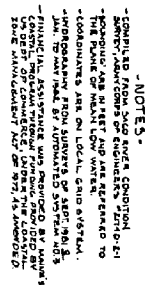 NOTES-
-COMPILED FROM SAGE RIVER CONDITION
SURVEY, ARMY CORPS OF ENGINEERS
-SOUNDINGS ARE IN FEET AND ARE REFERRED TO
THE PLANE OF MEAN LOW WATER.
-COORDINATES ARE ON LOCAL GRID SYSTEM.
-HYDROGRAPHY FROM SURVEYS OF SEPT. 1981 &
JAN. TO MAY 1982, BY AUTOMATED SYSTEM NO. 3
-FINANCIAL ASSISTANCE WAS PROVIDED BY MAINE'S
COASTAL PROGRAM, FROM FUNDING PROVIDED BY
US DEPT OF COMMERCE, UNDER THE COASTAL
ZONE MANAGEMENT ACT OF 1972, AS AMENDED.